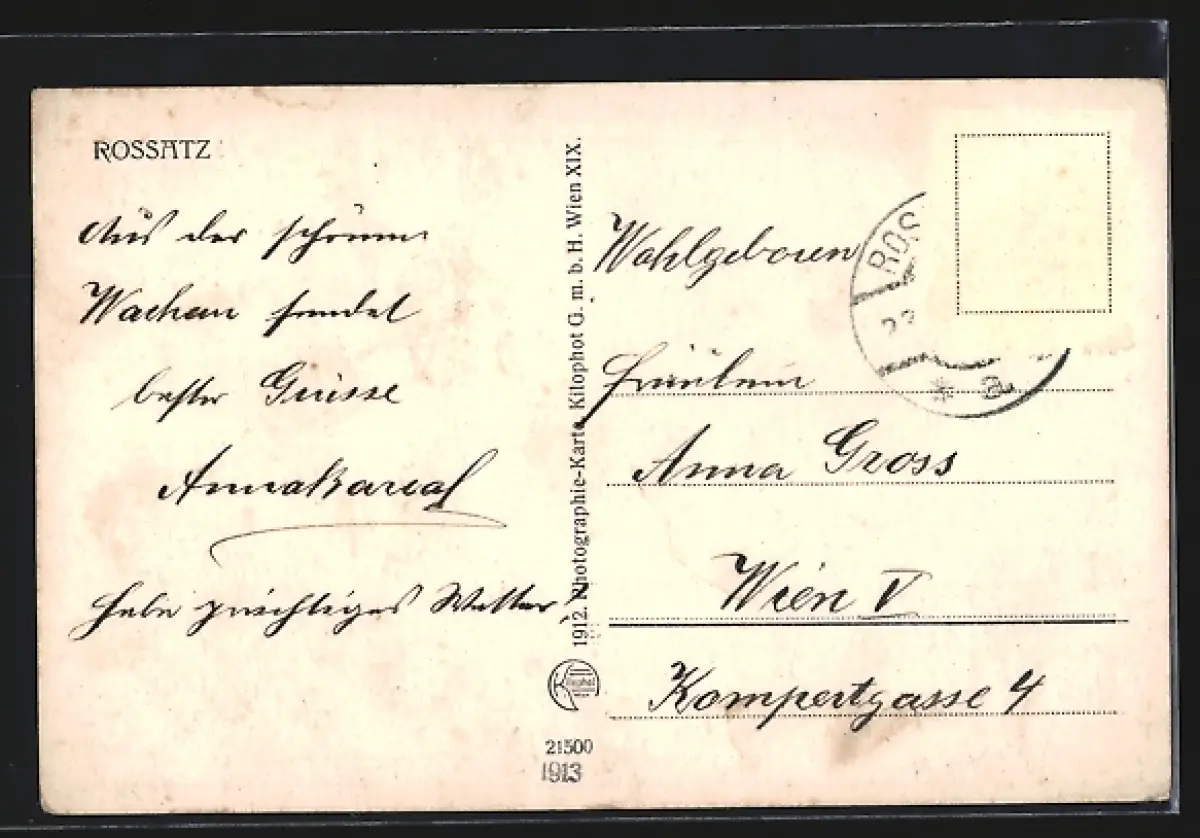 ROSSATZ
Aus der schönen
Wachau sendet
beste Grüsse
Habe prächtiges Wetter
1912. Photographie-Karte, Kilophot G. m. b. H. Wien XIX.
Kilophot
21500
1913
Wohlgeboren
Fräulein
Anna Gross
Wien V
Kompertgasse 4
ROS
a